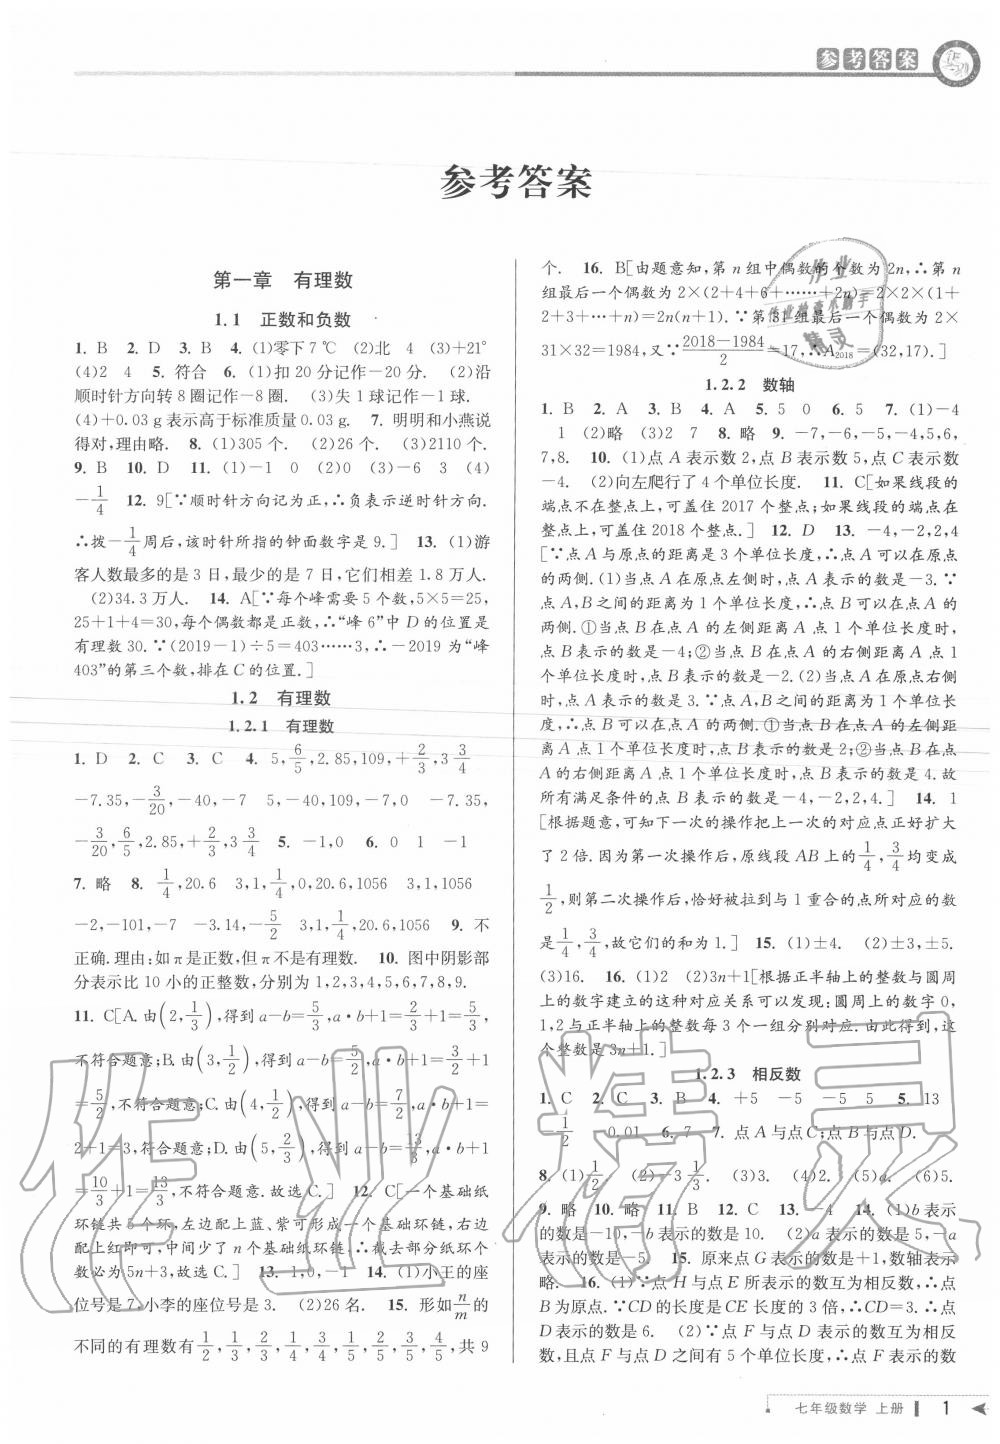 参考答案
参考答案
第一章　有理数
1.1　正数和负数
1. B　2. D　3. B　4. (1)零下7 ℃　(2)北　4　(3)+21°
(4)2　4　5. 符合　6. (1)扣20分记作-20分. (2)沿
顺时针方向转8圈记作-8圈. (3)失1球记作-1球.
(4)+0.03 g表示高于标准质量0.03 g.　7. 明明和小燕说
得对,理由略.　8. (1)305个. (2)26个. (3)2110个.
9. B　10. D　11. (1)-1　0　(2)0　(3)-6　3　(4)
-1/4　12. 9[∵顺时针方向记为正,∴负表示逆时针方向.
∴拨-1/4周后,该时针所指的钟面数字是9.]　13. (1)游
客人数最多的是3日,最少的是7日,它们相差1.8万人.
(2)34.3万人.　14. A[∵每个峰需要5个数,5×5=25,
25+1+4=30,每个偶数都是正数,∴“峰6”中D的位置是
有理数30. ∵(2019-1)÷5=403……3,∴-2019为“峰
403”的第三个数,排在C的位置.]
1.2　有理数
1.2.1　有理数
1. D　2. C　3. C　4. 5,6/5,2.85,109,+2/3,3 3/4
-7.35,-3/20,-40,-7　5,-40,109,-7,0　-7.35,
-3/20,6/5,2.85,+2/3,3 3/4　5. -1,0　6. 0　1　-1
7. 略　8. 1/4,20.6　3,1,1/4,0,20.6,1056　3,1,1056
-2,-101,-7　-3.14,-5/2　3,1,1/4,20.6,1056　9. 不
正确.理由:如π是正数,但π不是有理数.　10. 图中阴影部
分表示比10小的正整数,分别为1,2,3,4,5,6,7,8,9.
11. C[A.由(2,1/3),得到a-b=5/3,a·b+1=2/3+1=5/3,
不符合题意;B.由(3,1/2),得到a-b=5/2,a·b+1=3/2+1
=5/2,不符合题意;C.由(4,1/2),得到a-b=7/2,a·b+1=
2+1=3,符合题意;D.由(5,2/3),得到a-b=13/3,a·b+1
=10/3+1=13/3,不符合题意.故选C.]　12. C[一个基础纸
环链共5个环,左边配上蓝、紫可形成一个基础环链,右边
配上红即可,中间少了n个基础纸环链,∴截去部分纸环个
数必为5n+3,故选C.]　13. -1,0,-1　14. (1)小王的座
位号是7,小李的座位号是3. (2)26名.　15. 形如n/m的
不同的有理数有1/2,1/3,2/3,1/4,3/4,1/5,2/5,3/5,4/5,共9
个.　16. B[由题意知,第n组中偶数的个数为2n,∴第n
组最后一个偶数为2×(2+4+6+……+2n)=2×2×(1+
2+3+…+n)=2n(n+1).∵第31组最后一个偶数为2×
31×32=1984,又∵(2018-1984)/2=17,∴A2018=(32,17).]
1.2.2　数轴
1. B　2. A　3. B　4. A　5. 5　0　6. 5　7. (1)-4
1　(2)略　(3)2　7　8. 略　9. -7,-6,-5,-4,5,6,
7,8.　10. (1)点A表示数2,点B表示数5,点C表示数
-4. (2)向左爬行了4个单位长度.　11. C[如果线段的
端点不在整点上,可盖住2017个整点;如果线段的端点在
整点上,可盖住2018个整点.]　12. D　13. -4,-2,2,4
[∵点A与原点的距离是3个单位长度,∴点A可以在原点
的两侧.(1)当点A在原点左侧时,点A表示的数是-3.∵
点A,B之间的距离为1个单位长度,∴点B可以在点A的
两侧.①当点B在点A的左侧距离点A 1个单位长度时,
点B表示的数是-4;②当点B在点A的右侧距离点A 1
个单位长度时,点B表示的数是-2.(2)当点A在原点右侧
时,点A表示的数是3.∵点A,B之间的距离为1个单位长
度,∴点B可以在点A的两侧.①当点B在点A的左侧距
离点A 1个单位长度时,点B表示的数是2;②当点B在点
A的右侧距离点A 1个单位长度时,点B表示的数是4.故
所有满足条件的点B表示的数是-4,-2,2,4.]　14. 1
[根据题意,可知下一次的操作把上一次的对应点正好扩大
了2倍.因为第一次操作后,原线段AB上的1/4,3/4均变成
1/2,则第二次操作后,恰好被拉到与1重合的点所对应的数
是1/4,3/4,故它们的和为1.]　15. (1)±4. (2)±3,±5.
(3)16.　16. (1)2　(2)3n+1[根据正半轴上的整数与圆周
上的数字建立的这种对应关系可以发现:圆周上的数字0,
1,2与正半轴上的整数每3个一组分别对应.由此得到,这
个整数是3n+1.]
1.2.3　相反数
1. C　2. C　3. B　4. +5　-5　-5　5　5. 13
-1/2　0.01　6. 7　7. 点A与点C;点B与点D.
8. (1)1/2　(2)-3 1/3. (3)4. (4)2. (5)a. (6)5.
9. 略　10. 略　11. B　12. C　13. -4　14. (1)b表示
的数是-10,-b表示的数是10. (2)a表示的数是5,-a
表示的数是-5　15. 原来点G表示的数是+1,数轴表示
略.　16. (1)∵点H与点E所表示的数互为相反数,∴点
B为原点.∵CD的长度是CE长度的3倍,∴CD=3.∴点
D表示的数是6. (2)∵点F与点D表示的数互为相反
数,且点F与点D之间有5个单位长度,∴点F表示的数
七年级数学 上册　1
作业
作业检查小助手
精灵
作业精灵